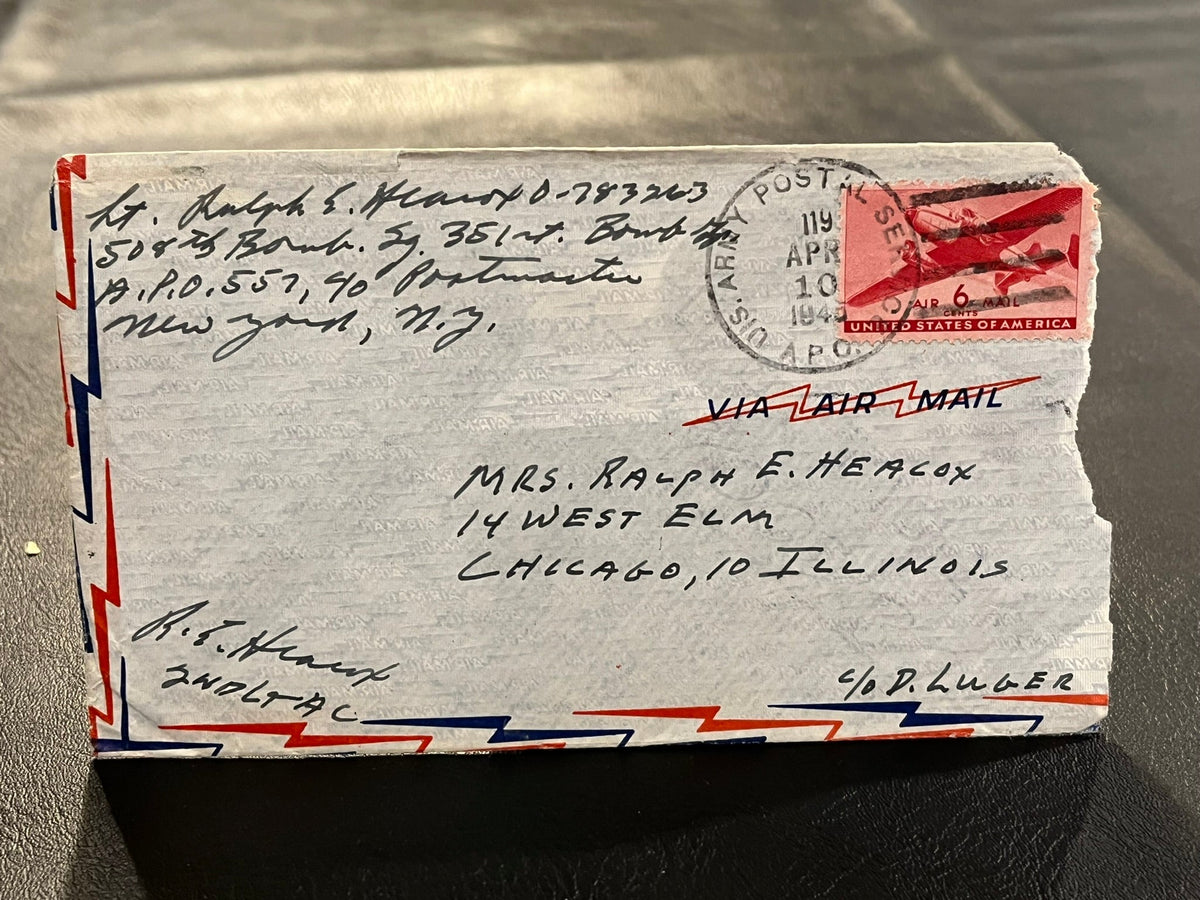 Lt. Ralph E. Heacox O-783263
508th Bomb. Sq. 351st. Bomb Gp.
A.P.O. 557, c/o Postmaster
New York, N.Y.
U.S. ARMY POSTAL SERVICE
119
APR
10
1945
A.P.O.
AIR 6 MAIL
CENTS
UNITED STATES OF AMERICA
VIA AIR MAIL
MRS. RALPH E. HEACOX
14 WEST ELM
CHICAGO, 10 ILLINOIS
R.E. Heacox
2ND LT AC
c/o D. LUGER